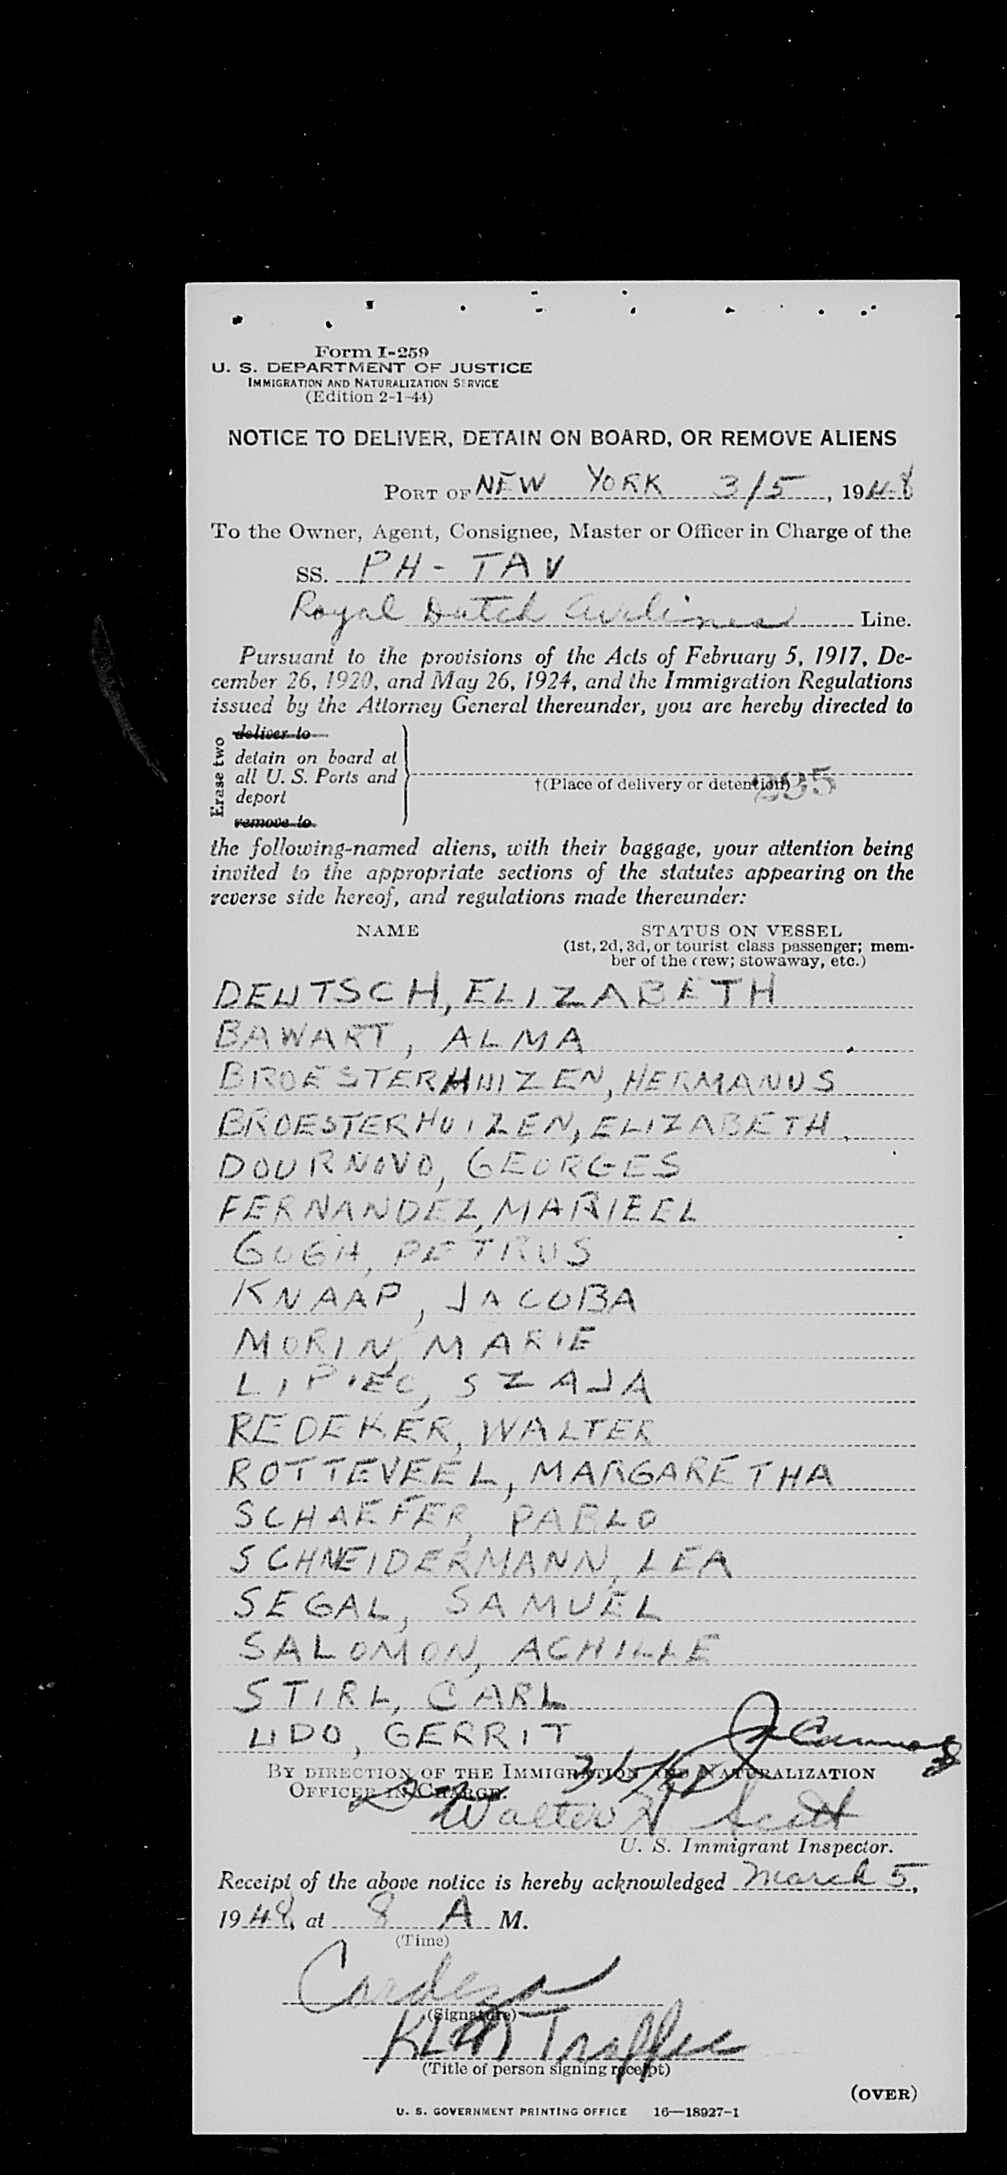 Form I-259
U. S. DEPARTMENT OF JUSTICE
IMMIGRATION AND NATURALIZATION SERVICE
(Edition 2-1-44)
NOTICE TO DELIVER, DETAIN ON BOARD, OR REMOVE ALIENS
PORT OF NEW YORK 3/5, 1948
To the Owner, Agent, Consignee, Master or Officer in Charge of the
SS. PH-TAV
Royal Dutch Airlines Line.
Pursuant to the provisions of the Acts of February 5, 1917, De-
cember 26, 1920, and May 26, 1924, and the Immigration Regulations
issued by the Attorney General thereunder, you are hereby directed to
Erase two
deliver to
detain on board at
all U. S. Ports and
deport
remove to
†(Place of delivery or detention) 235
the following-named aliens, with their baggage, your attention being
invited to the appropriate sections of the statutes appearing on the
reverse side hereof, and regulations made thereunder:
NAME STATUS ON VESSEL
(1st, 2d, 3d, or tourist class passenger; mem-
ber of the crew; stowaway, etc.)
DEUTSCH, ELIZABETH
BAWART, ALMA
BROESTERHUIZEN, HERMANUS
BROESTERHUIZEN, ELIZABETH
DOURNOVO, GEORGES
FERNANDEZ, MARIEEL
GOGH, PETRUS
KNAAP, JACOBA
MORIN, MARIE
LIPIEC, SZAJA
REDEKER, WALTER
ROTTEVEEL, MARGARETHA
SCHAEFER, PABLO
SCHNEIDERMANN, LEA
SEGAL, SAMUEL
SALOMON, ACHILLE
STIRL, CARL
UDO, GERRIT
BY DIRECTION OF THE IMMIGRATION AND NATURALIZATION
OFFICER IN CHARGE.
Walter H Scott
U. S. Immigrant Inspector.
Receipt of the above notice is hereby acknowledged March 5,
1948, at 8 A M.
(Time)
Cardeza
(Signature)
KLM Traffic
(Title of person signing receipt)
(OVER)
U. S. GOVERNMENT PRINTING OFFICE 16—18927-1